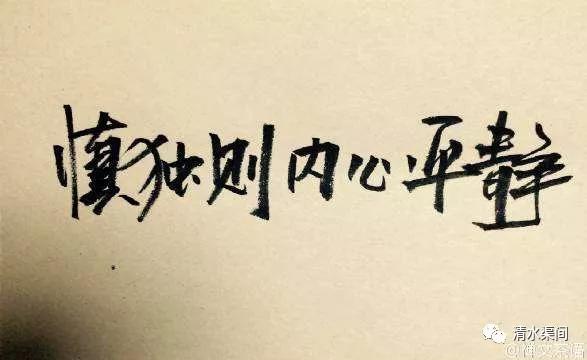 慎独则内心平静
清水渠间